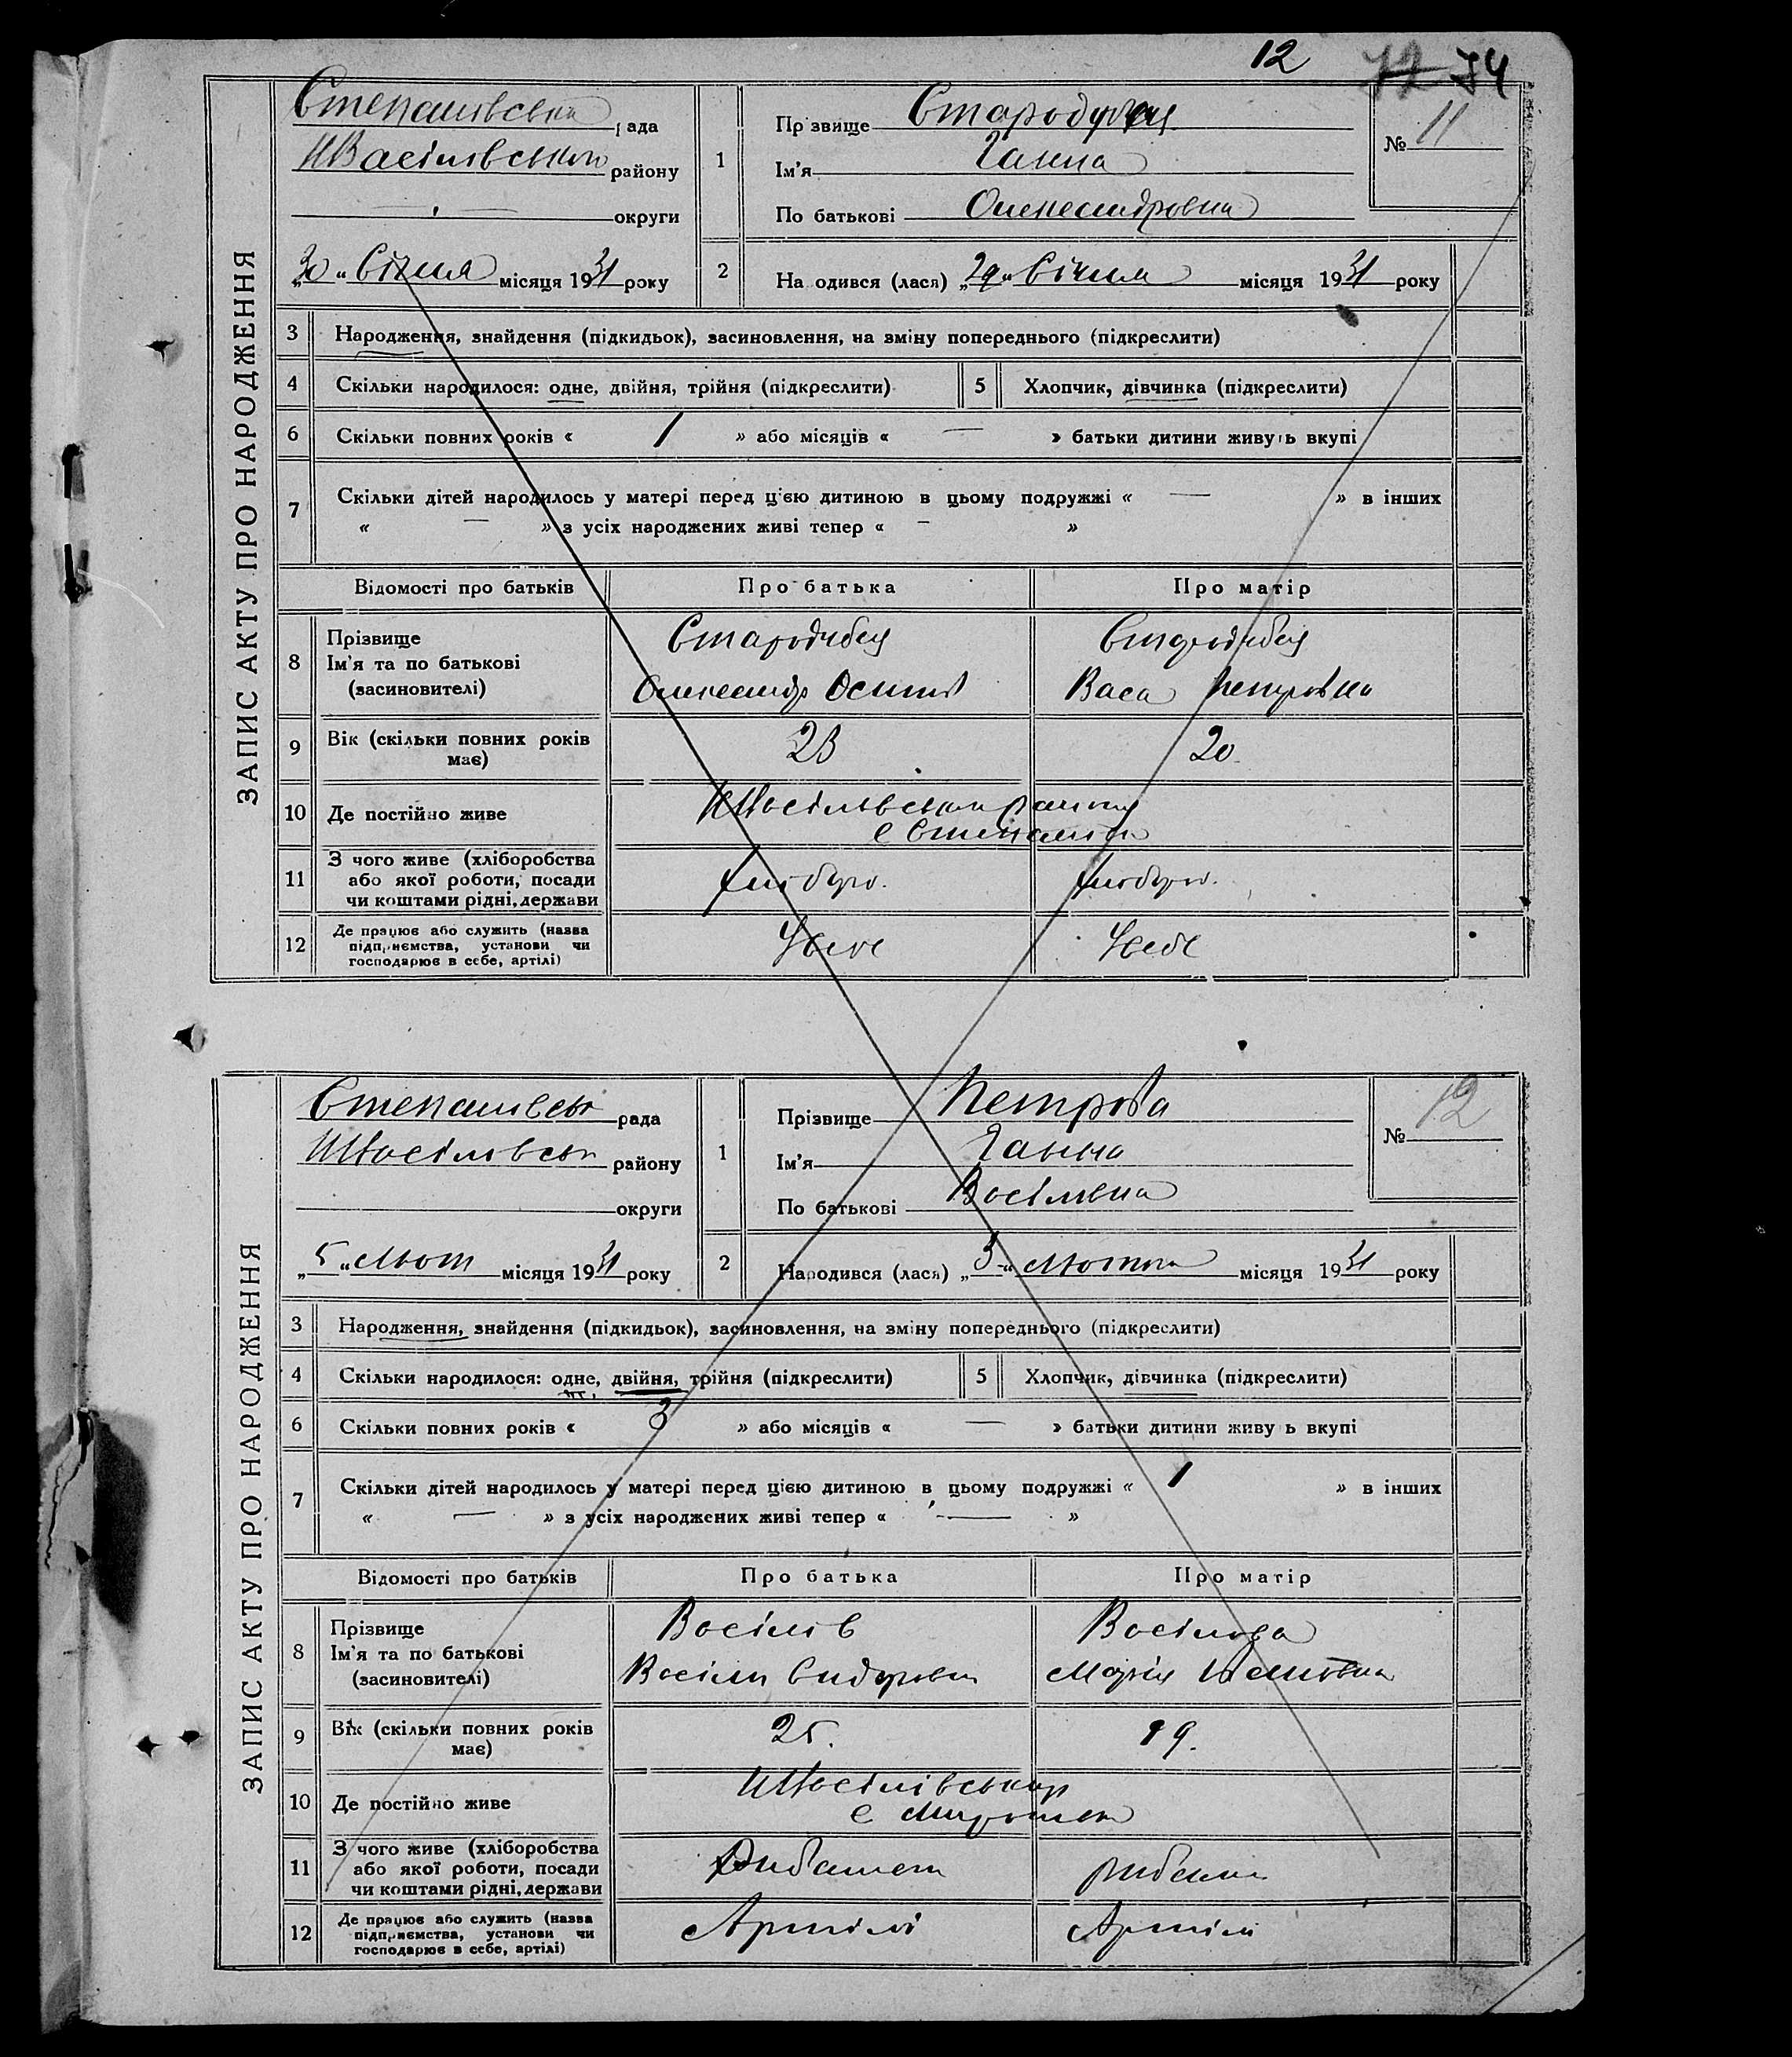 12
72 74
ЗАПИС АКТУ ПРО НАРОДЖЕННЯ
Степанівська рада
району
округи
„30“ Січня місяця 1931 року
1
Пр звище
Ім'я Ганна
По батькові Олександровна
№ 11
2
На одився (лася) „29“ Січня місяця 1931 року
3 Народження, знайдення (підкидьок), засиновлення, на зміну попереднього (підкреслити)
4 Скільки народилося: одне, двійня, трійня (підкреслити)
5 Хлопчик, дівчинка (підкреслити)
6 Скільки повних років « 1 » або місяців « — » батьки дитини живу ь вкупі
7 Скільки дітей народилось у матері перед цією дитиною в цьому подружжі « — » в інших
« — » з усіх народжених живі тепер « — »
Відомості про батьків Про батька Про матір
8 Прізвище
Ім'я та по батькові
(засиновителі)
Стародубец
Олександр Осипов
Стародубец
Васа Петровна
9 Вік (скільки повних років
має)
23
20
10 Де постійно живе
району
с Степанівка
11 З чого живе (хліборобства
або якої роботи, посади
чи коштами рідні, держави
хлібороб.
хлібороб.
12 Де працює або служить (назва
підприємства, установи чи
господарює в себе, артілі)
У себе
У себе
ЗАПИС АКТУ ПРО НАРОДЖЕННЯ
Степанівськ рада
району
округи
„5“ Лют місяця 1931 року
1
Прізвище Петрова
Ім'я Ганна
По батькові Василівна
№ 12
2
Народився (лася) „3“ Лютого місяця 1931 року
3 Народження, знайдення (підкидьок), засиновлення, на зміну попереднього (підкреслити)
4 Скільки народилося: одне, двійня, трійня (підкреслити)
5 Хлопчик, дівчинка (підкреслити)
6 Скільки повних років « 3 » або місяців « — » батьки дитини живу ь вкупі
7 Скільки дітей народилось у матері перед цією дитиною в цьому подружжі « 1 » в інших
« — » з усіх народжених живі тепер « — »
Відомості про батьків Про батька Про матір
8 Прізвище
Ім'я та по батькові
(засиновителі)
Васілів
Васіль Сидорович
Васілова
Марія
9 Вік (скільки повних років
має)
25.
19.
10 Де постійно живе
с
11 З чого живе (хліборобства
або якої роботи, посади
чи коштами рідні, держави
12 Де працює або служить (назва
підприємства, установи чи
господарює в себе, артілі)
Артілі
Артілі